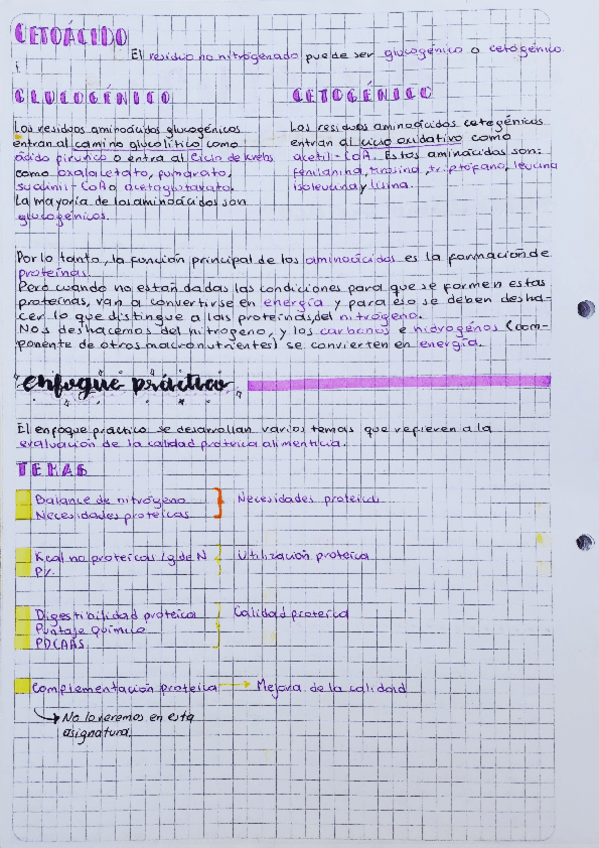 CETOÁCIDO
El residuo no nitrogenado puede ser glucogénico o cetogénico
GLUCOGÉNICO
Los residuos aminoácidos glucogénicos
entran al camino glucolítico como
ácido pirúvico o entra al Ciclo de krebs
como oxalacetato, fumarato,
succinil-CoA o acetoglutarato.
La mayoría de los aminoácidos son
glucogénicos.
CETOGÉNICO
Los residuos aminoácidos cetogénicos
entran al ciclo oxidativo como
acetil-CoA. Estos aminoácidos son:
fenilanina, tirosina, triptófano, leucina
isoleucina y lisina.
Por lo tanto, la función principal de los aminoácidos es la formación de
proteínas.
Pero cuando no están dadas las condiciones para que se formen estas
proteínas, van a convertirse en energía y para eso se deben desha-
cer lo que distingue a las proteínas, del nitrógeno.
Nos deshacemos del nitrógeno, y los carbonos e hidrógenos (com-
ponente de otros macronutrientes) se convierten en energía.
enfoque práctico
El enfoque práctico se desarrollan varios temas que refieren a la
evaluación de la calidad proteica alimenticia.
TEMAS
Balance de nitrógeno
Necesidades proteicas
Necesidades proteicas
Kcal no proteicas /g de N
P%
Utilización proteica
Digestibilidad proteica
Puntaje químico
PDCAAS
Calidad proteica
Complementación proteica → Mejora de la calidad
→ No lo veremos en esta
asignatura.